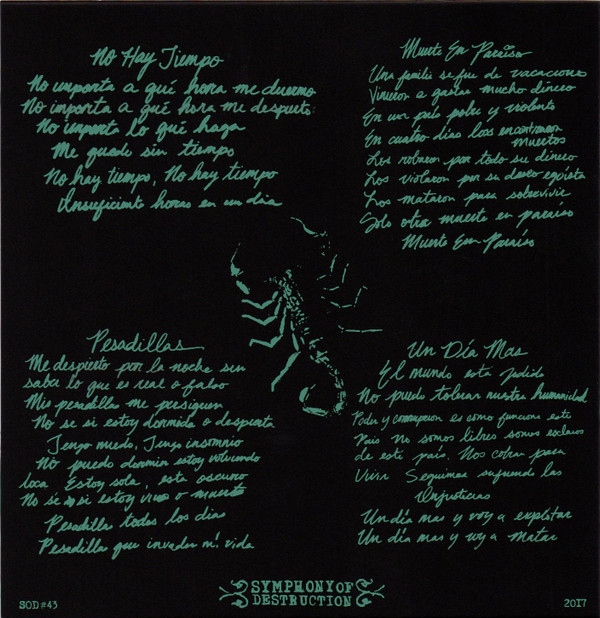 No Hay Tiempo
No importa a qué hora me duermo
No importa a qué hora me despierto
No importa lo qué haga
Me quedo sin tiempo
No hay tiempo, No hay tiempo
Insuficiente horas en un dia
Muerte En Paraiso
Una familia se fue de vacaciones
Vinieron a gastar mucho dinero
En un país pobre y violento
En cuatro días los encontraron
muertos
Los robaron por todo su dinero
Los violaron por su deseo egoista
Los mataron para sobrevivir
Solo otra muerte en paraiso
Muerte En Paraiso
Pesadillas
Me despierto por la noche sin
saber lo que es real o falso
Mis pesadillas me persiguen
No se si estoy dormida o despierta
Tengo miedo, Tengo insomnio
No puedo dormir estoy volviendo
loca Estoy sola, esta oscuro
No se si estoy viva o muerta
Pesadilla todos los dias
Pesadilla que invaden mi vida
Un Día Mas
El mundo está jodido
No puedo tolerar nuestra humanidad
Poder y corrupcion es como funciona este
Pais No somos libres somos esclavos
de este país. Nos cobran para
Vivir Seguimos sufriendo las
Injusticias
Un día mas y voy a explotar
Un día mas y voy a matar
SYMPHONY OF
DESTRUCTION
SOD #43
2017